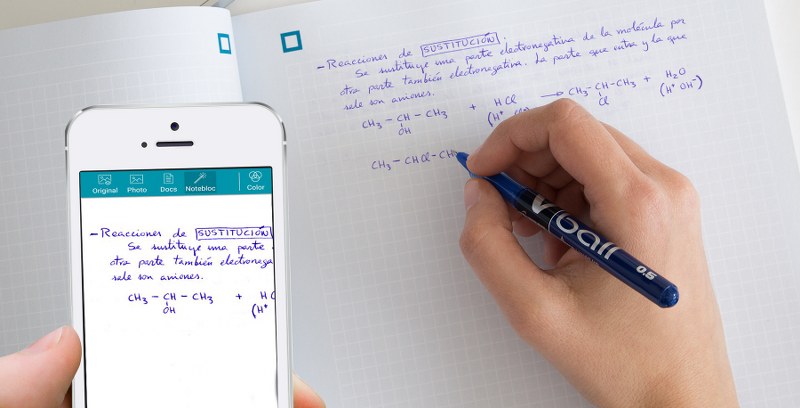 - Reacciones de SUSTITUCIÓN.
Se sustituye una parte electronegativa de la molécula por
otra parte también electronegativa. La parte que entra y la que
sale son aniones.
CH₃ - CH - CH₃ + HCl → CH₃ - CH - CH₃ + H₂O
OH (H⁺ Cl (H⁺ OH⁻)
Cl
CH₃ - CHCl - CH
V ball 0.5
Original Photo Docs Notebloc Color
- Reacciones de SUSTITUCIÓN
Se sustituye una parte
otra parte también electronega
sale son aniones.
CH₃ - CH - CH₃ + H C
OH (H⁺